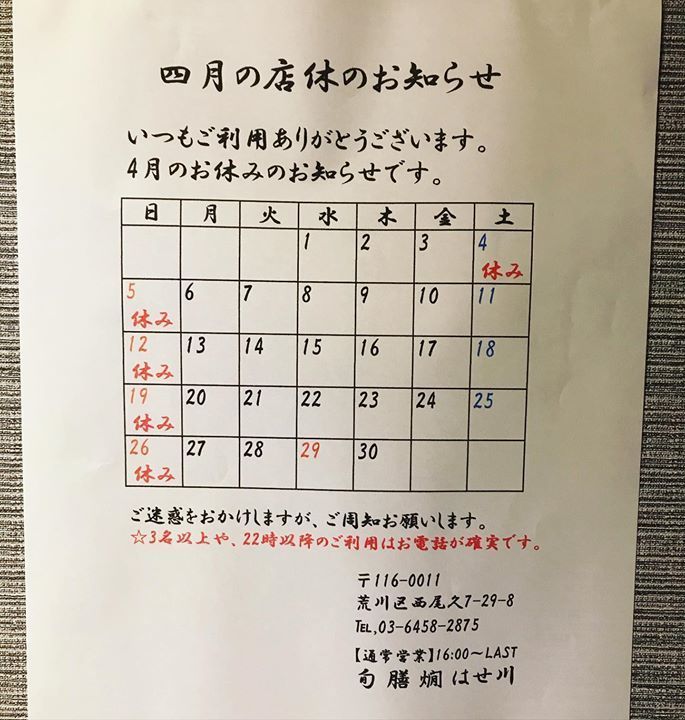 四月の店休のお知らせ
いつもご利用ありがとうございます。
4月のお休みのお知らせです。
日 月 火 水 木 金 土
1 2 3 4
休み
5 6 7 8 9 10 11
休み
12 13 14 15 16 17 18
休み
19 20 21 22 23 24 25
休み
26 27 28 29 30
休み
ご迷惑をおかけしますが、ご周知お願いします。
☆3名以上や、22時以降のご利用はお電話が確実です。
〒116-0011
荒川区西尾久7-29-8
TEL,03-6458-2875
【通常営業】16:00～LAST
旬 膳 燗 はせ川